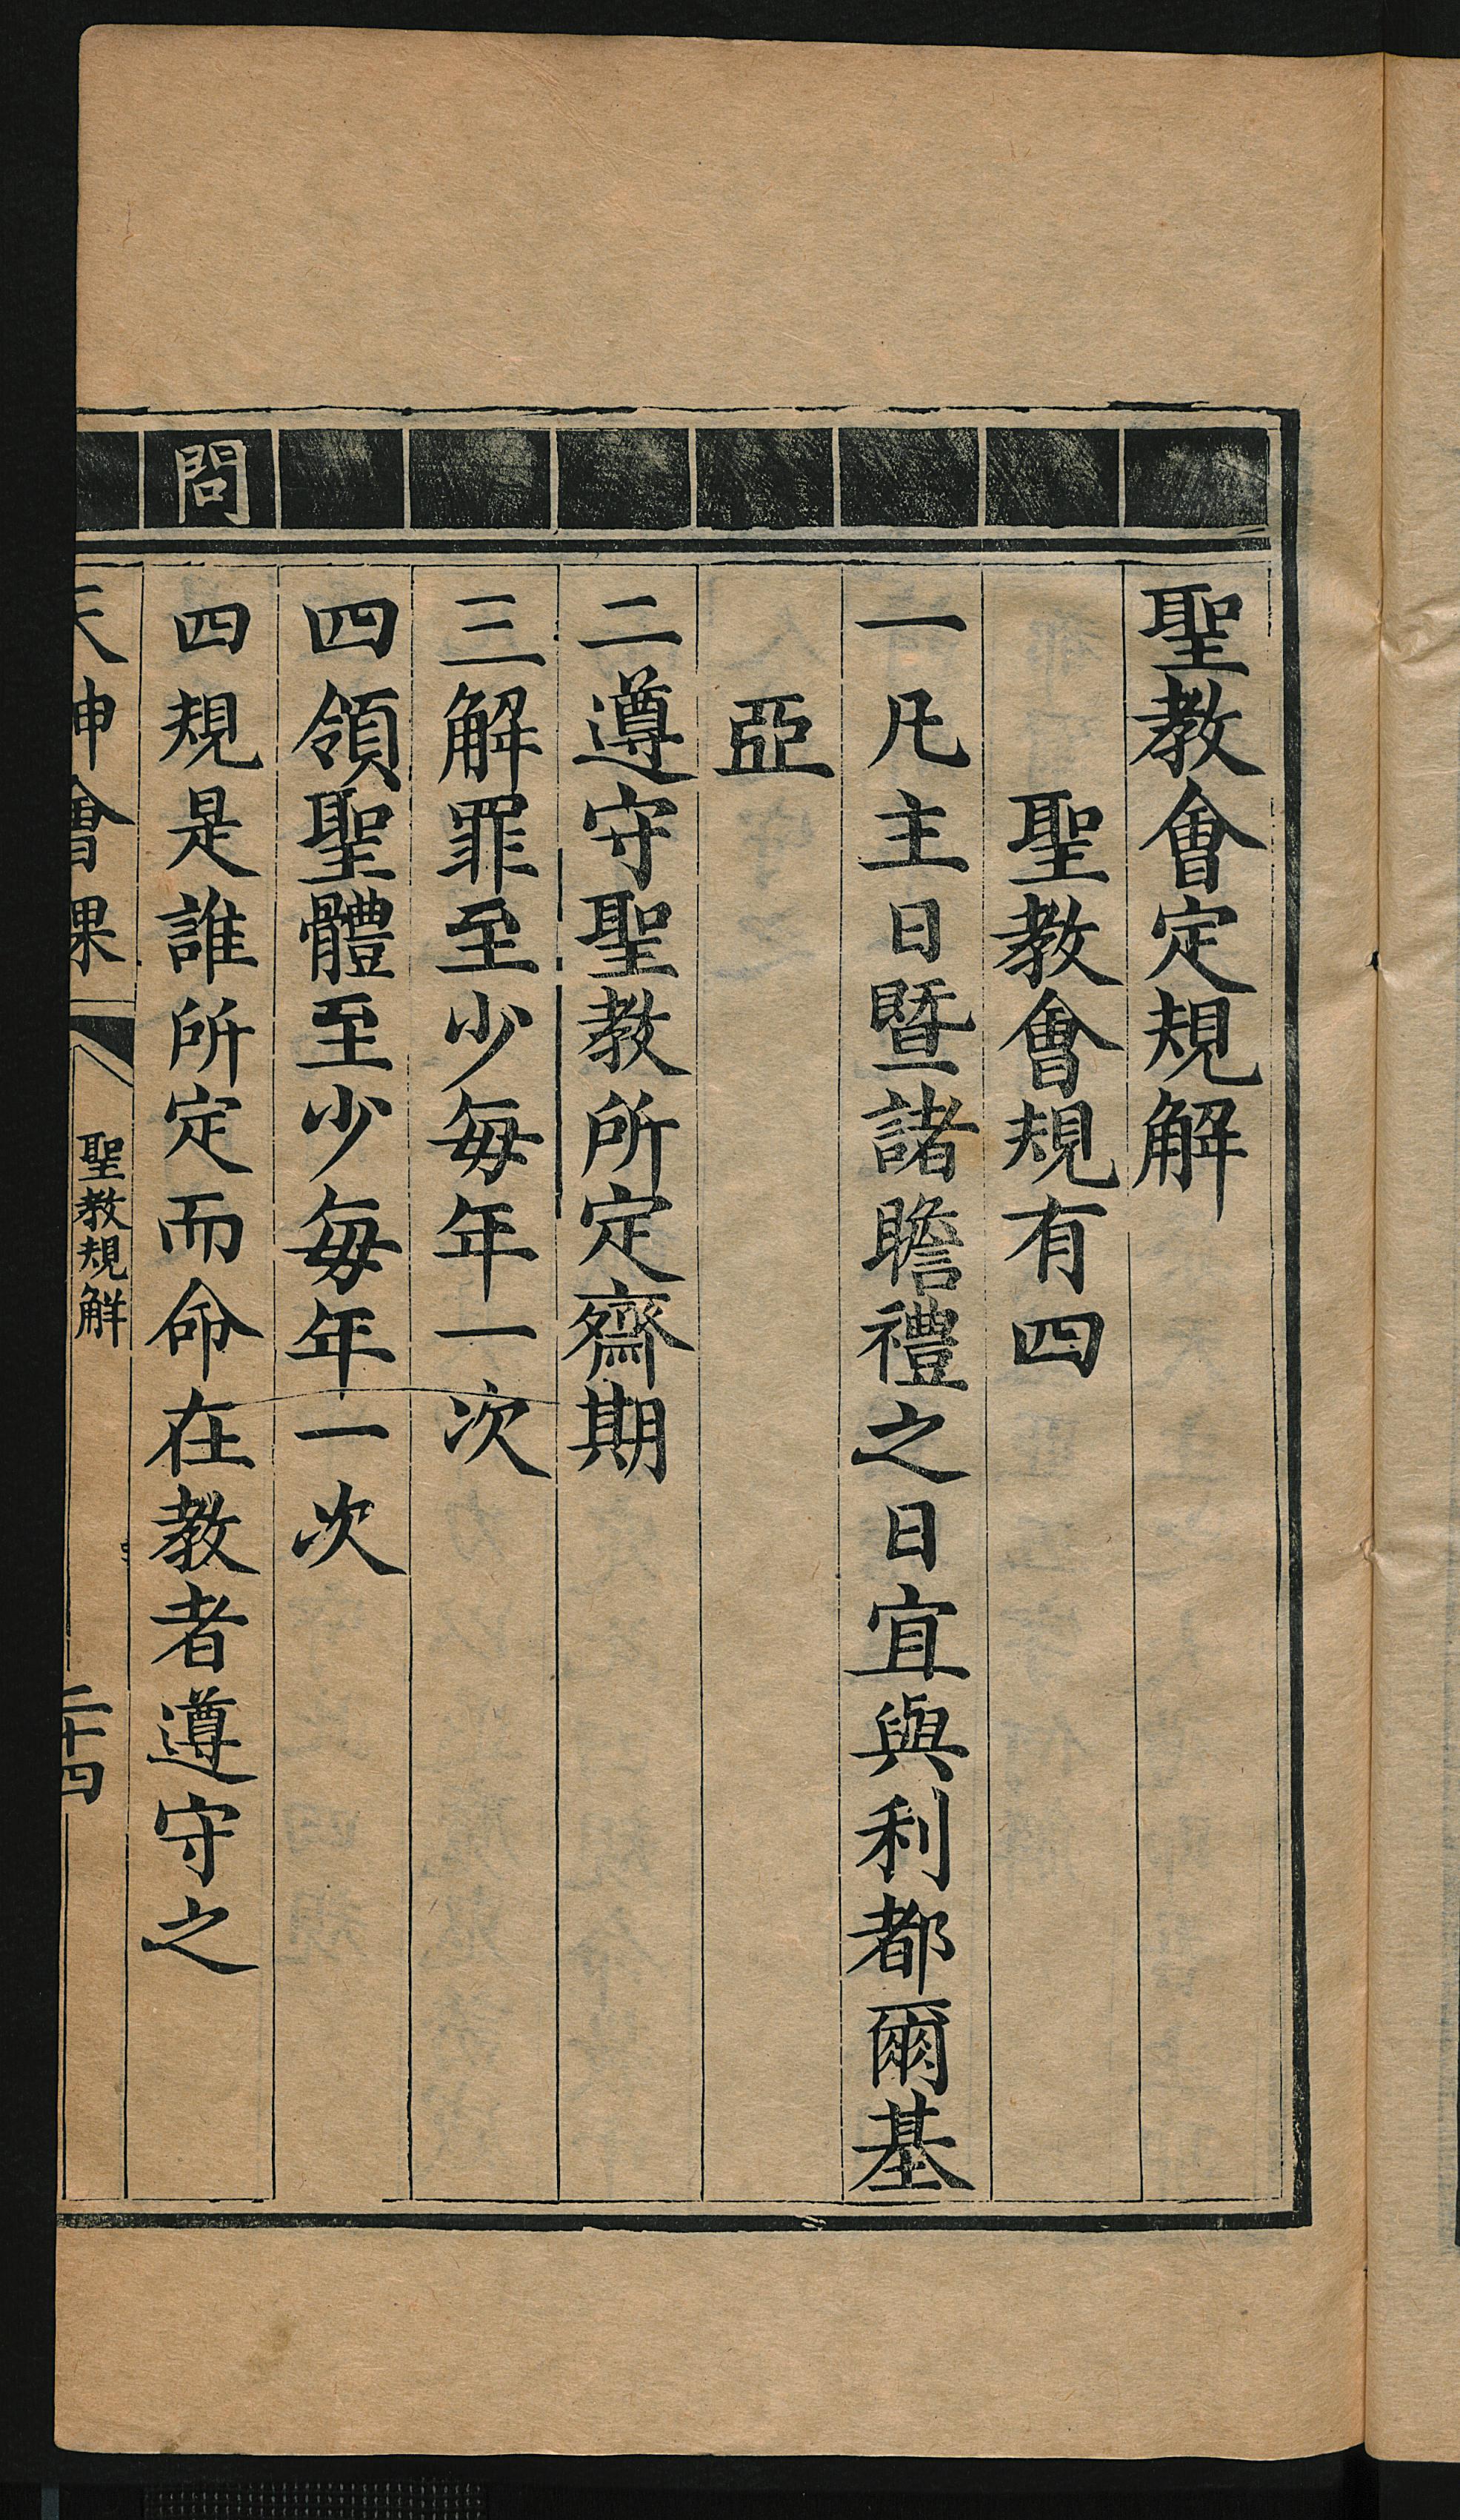 聖教會定規解
聖教會規有四
一凡主日暨諸瞻禮之日宜與利都爾基
亞
二遵守聖教所定齋期
三解罪至少每年一次
四領聖體至少每年一次
問
四規是誰所定而命在教者遵守之
天神會課
聖教規解
二十四